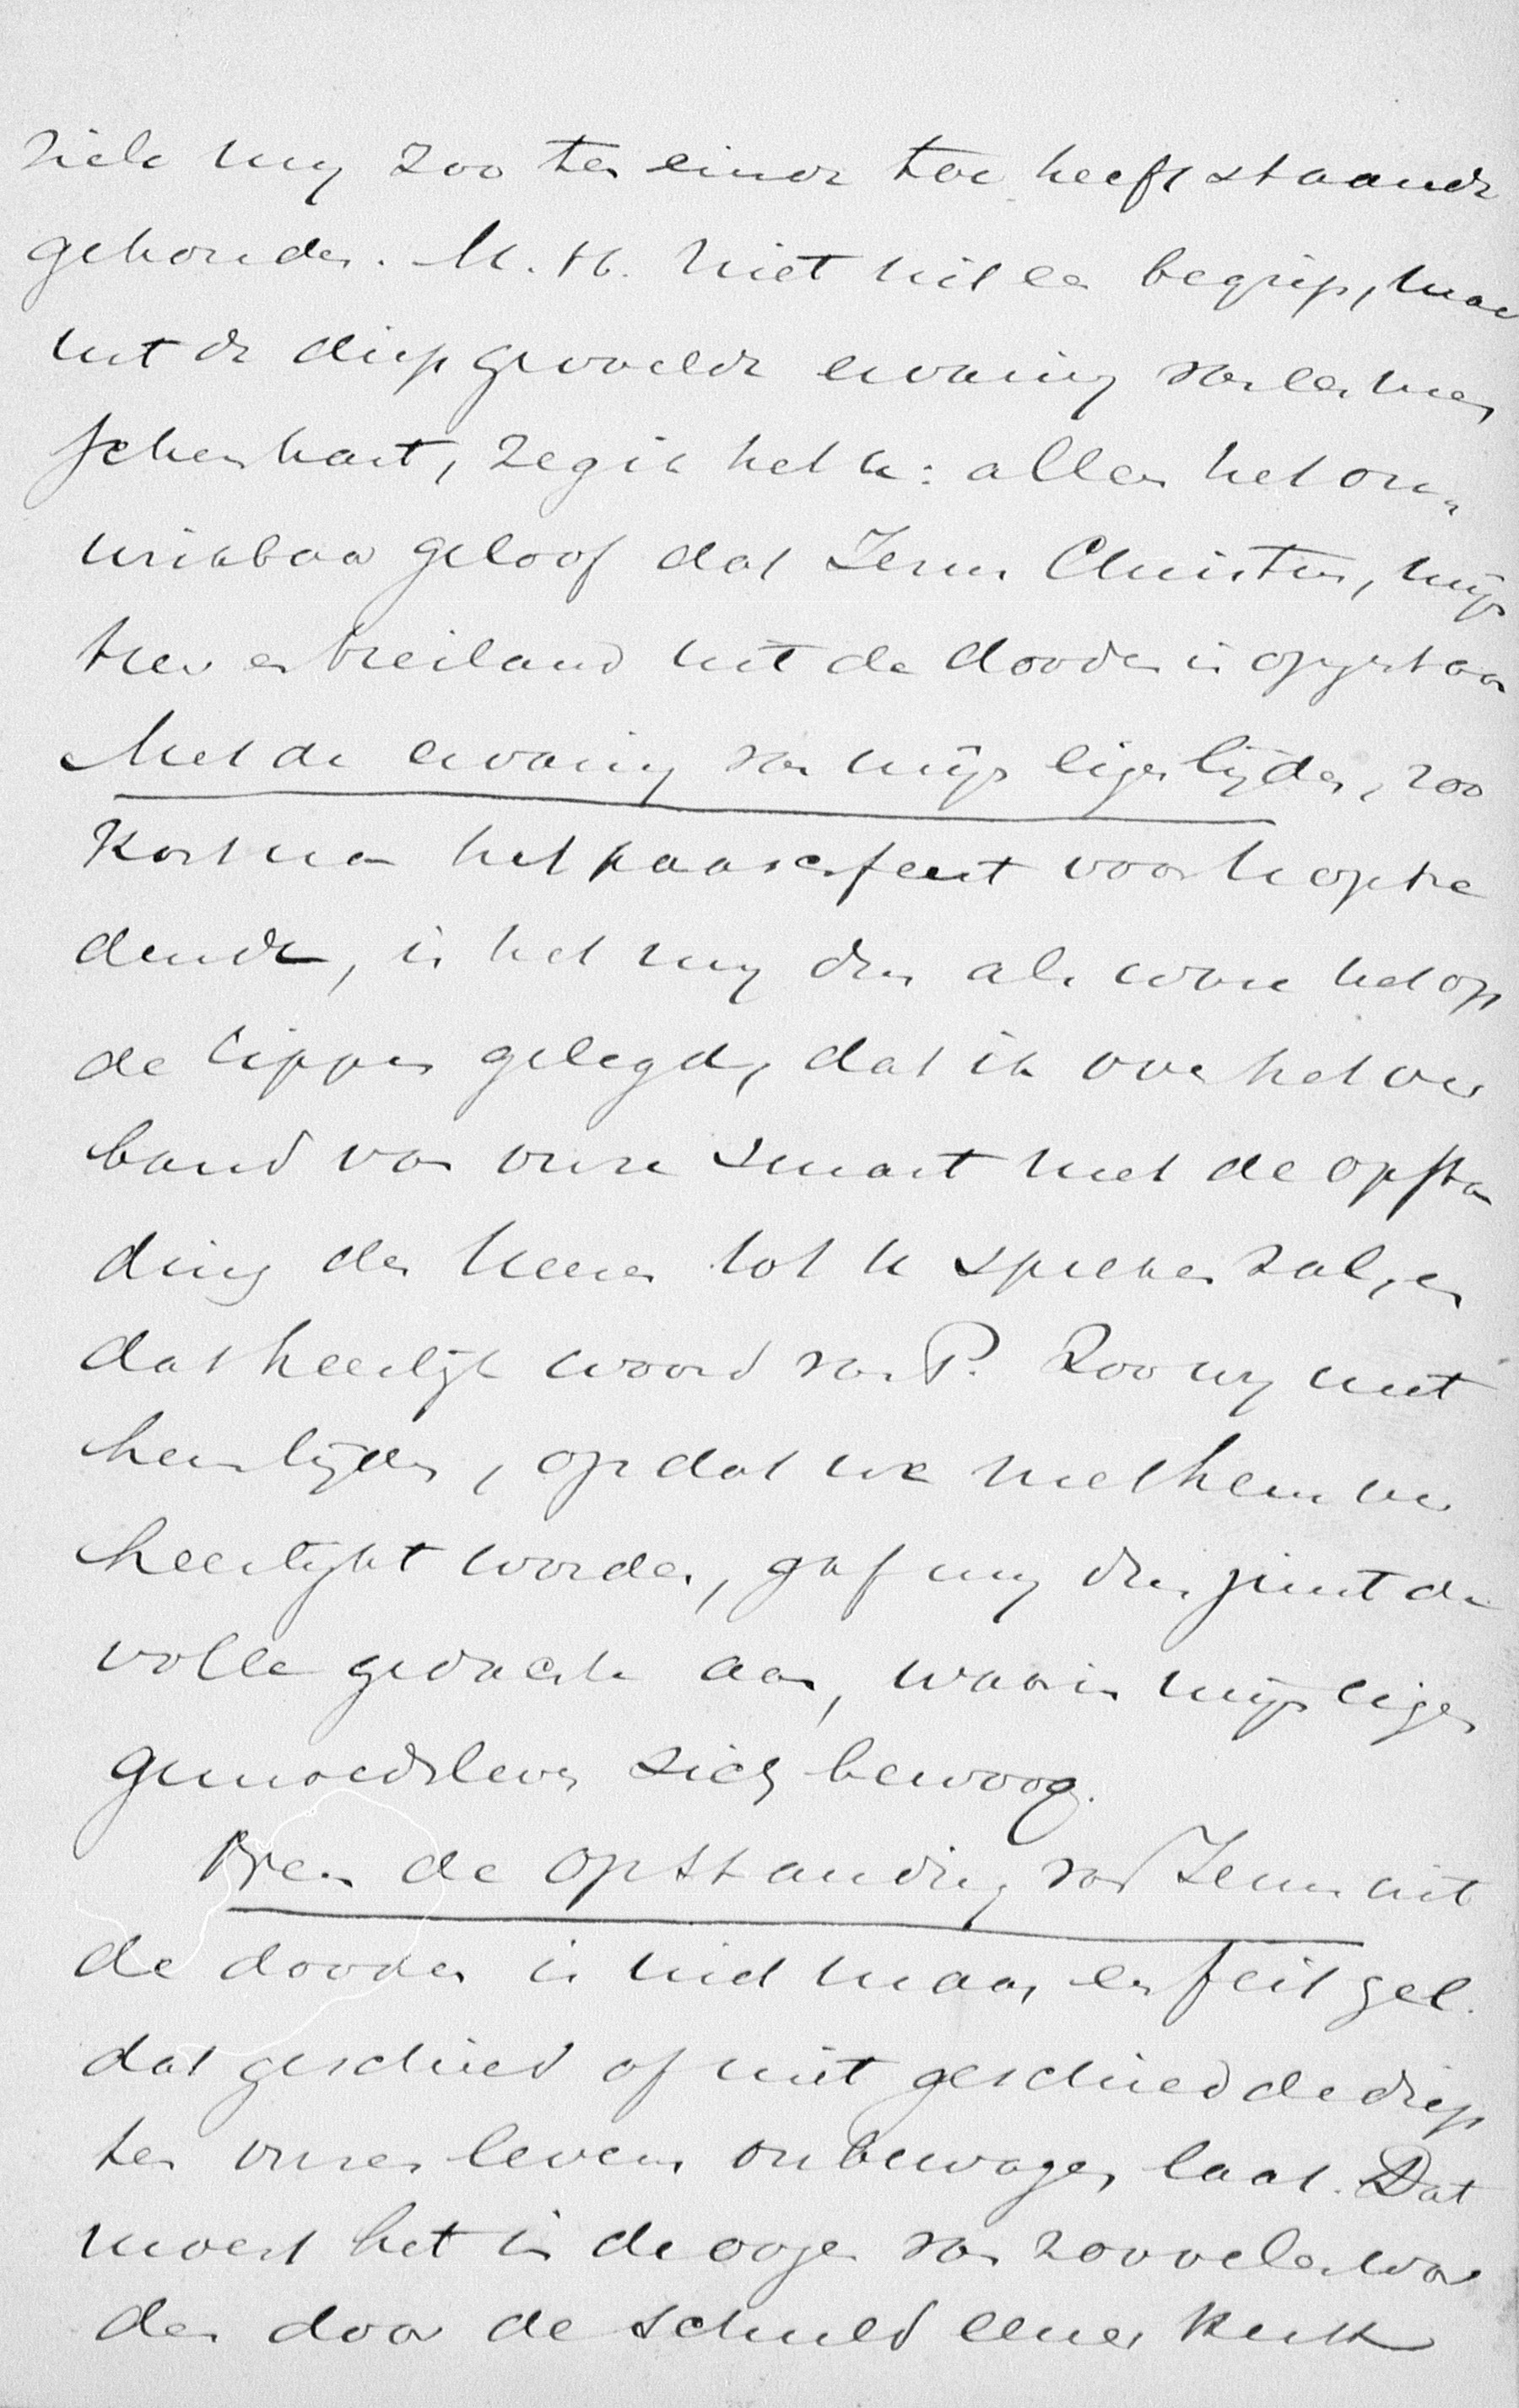 ziele my zoo ten einde toe heeft staande
gehouden. M. H. Niet uit een begrip, maar
uit de diep gevoelde ervaring van een men
schenhart, zeg ik het u: alleen het on„
wrikbaar geloof dat Jezus Christus, mijn
Heer en Heiland uit de dooden is opgestaan
Met de ervaring van mijn eigen lijden, zoo
kort na het paaschfeest voor u optre
dende, is het my dan als ware het op
de lippen gelegd, dat ik over het ver
band van onze smart met de opstan
ding des Heeren tot u spreken zal, en
dat heerlijk woord van P. Zoo wy met
hem lijden, opdat we met hem ver
heerlijkt worden, gaf my dan juist de
volle gedachte aan, waarin mijn eigen
gemoedsleven zich bewoog.
Neen de opstanding van Jezus uit
de dooden is niet maar een feit gel.
dat geschied of niet geschied de diep
ten onzes levens onbewogen laat. Dat
moest het in de oogen van zoovelen wor
den door de schuld eener Kerk